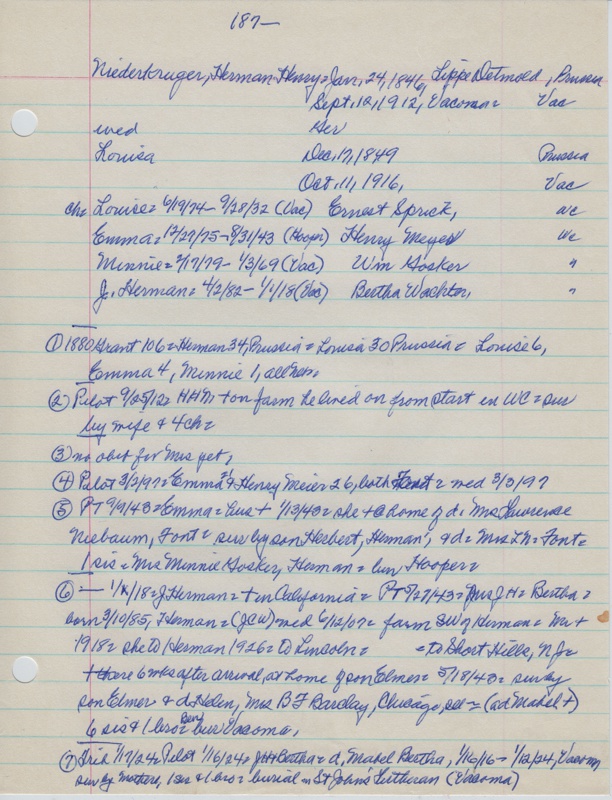 187-
Niederkruger, Herman Henry = Jan. 24, 1846, Lippe Detmold, Prussia
Sept. 12, 1912, Vacoma = Vac
wed Her
Louisa Dec. 17, 1849 Prussia
Oct. 11, 1916, Vac
ch = Louise = 6/19/74 - 9/28/32 (Vac) Ernest Sprick, WC
Emma = 12/27/75 - 8/31/43 (Hooper) Henry Meyer WC
Minnie = 2/17/79 - 1/3/69 (Vac) Wm Hosker "
J. Herman = 4/2/82 - 1/1/18 (Vac) Bertha Wachter, "
① 1880 Grant 106 = Herman 34, Prussia = Louisa 30 Prussia = Louise 6,
Emma 4, Minnie 1, all Neb.
② Pilot 9/25/12 = HHN + on farm he lived on from start in WC = sur
by wife & 4 ch =
③ no obit for Mrs yet,
④ Pilot 3/3/97 = Emma 21 & Henry Meier 26, both Font = wed 3/3/97
⑤ PT 9/9/43 = Emma = + 1/13/43 = she + @ home of d = Mrs Lawrence
Niebaum, Font = sur by son Herbert, Herman, & d = Mrs LN = Font =
1 sis = Mrs Minnie Hosker, Herman = bur Hooper =
⑥ — 1/ /18 = J. Herman = + in California = PT 5/27/43 = Mrs J H = Bertha =
born 3/10/85, Herman = (JCW) wed 6/12/07 = farm SW of Herman = Mr +
1918 = she to Herman 1926 = to Lincoln = = to Short Hills, N.J. =
+ there 6 wks after arrival, at home of son Elmer = 5/18/43 = sur by
son Elmer & d Helen, Mrs B F Barclay, Chicago, = (ad Mabel +)
6 sis & 1 bro Ben, bur Vacoma,
⑦ Trib 1/17/24, Pilot 1/16/24 = JH & Bertha = d, Mabel Bertha, 1/16/16 - 1/12/24, Vacoma
sur by mother, 1 sis & 1 bro = burial = St John's Lutheran (Vacoma)